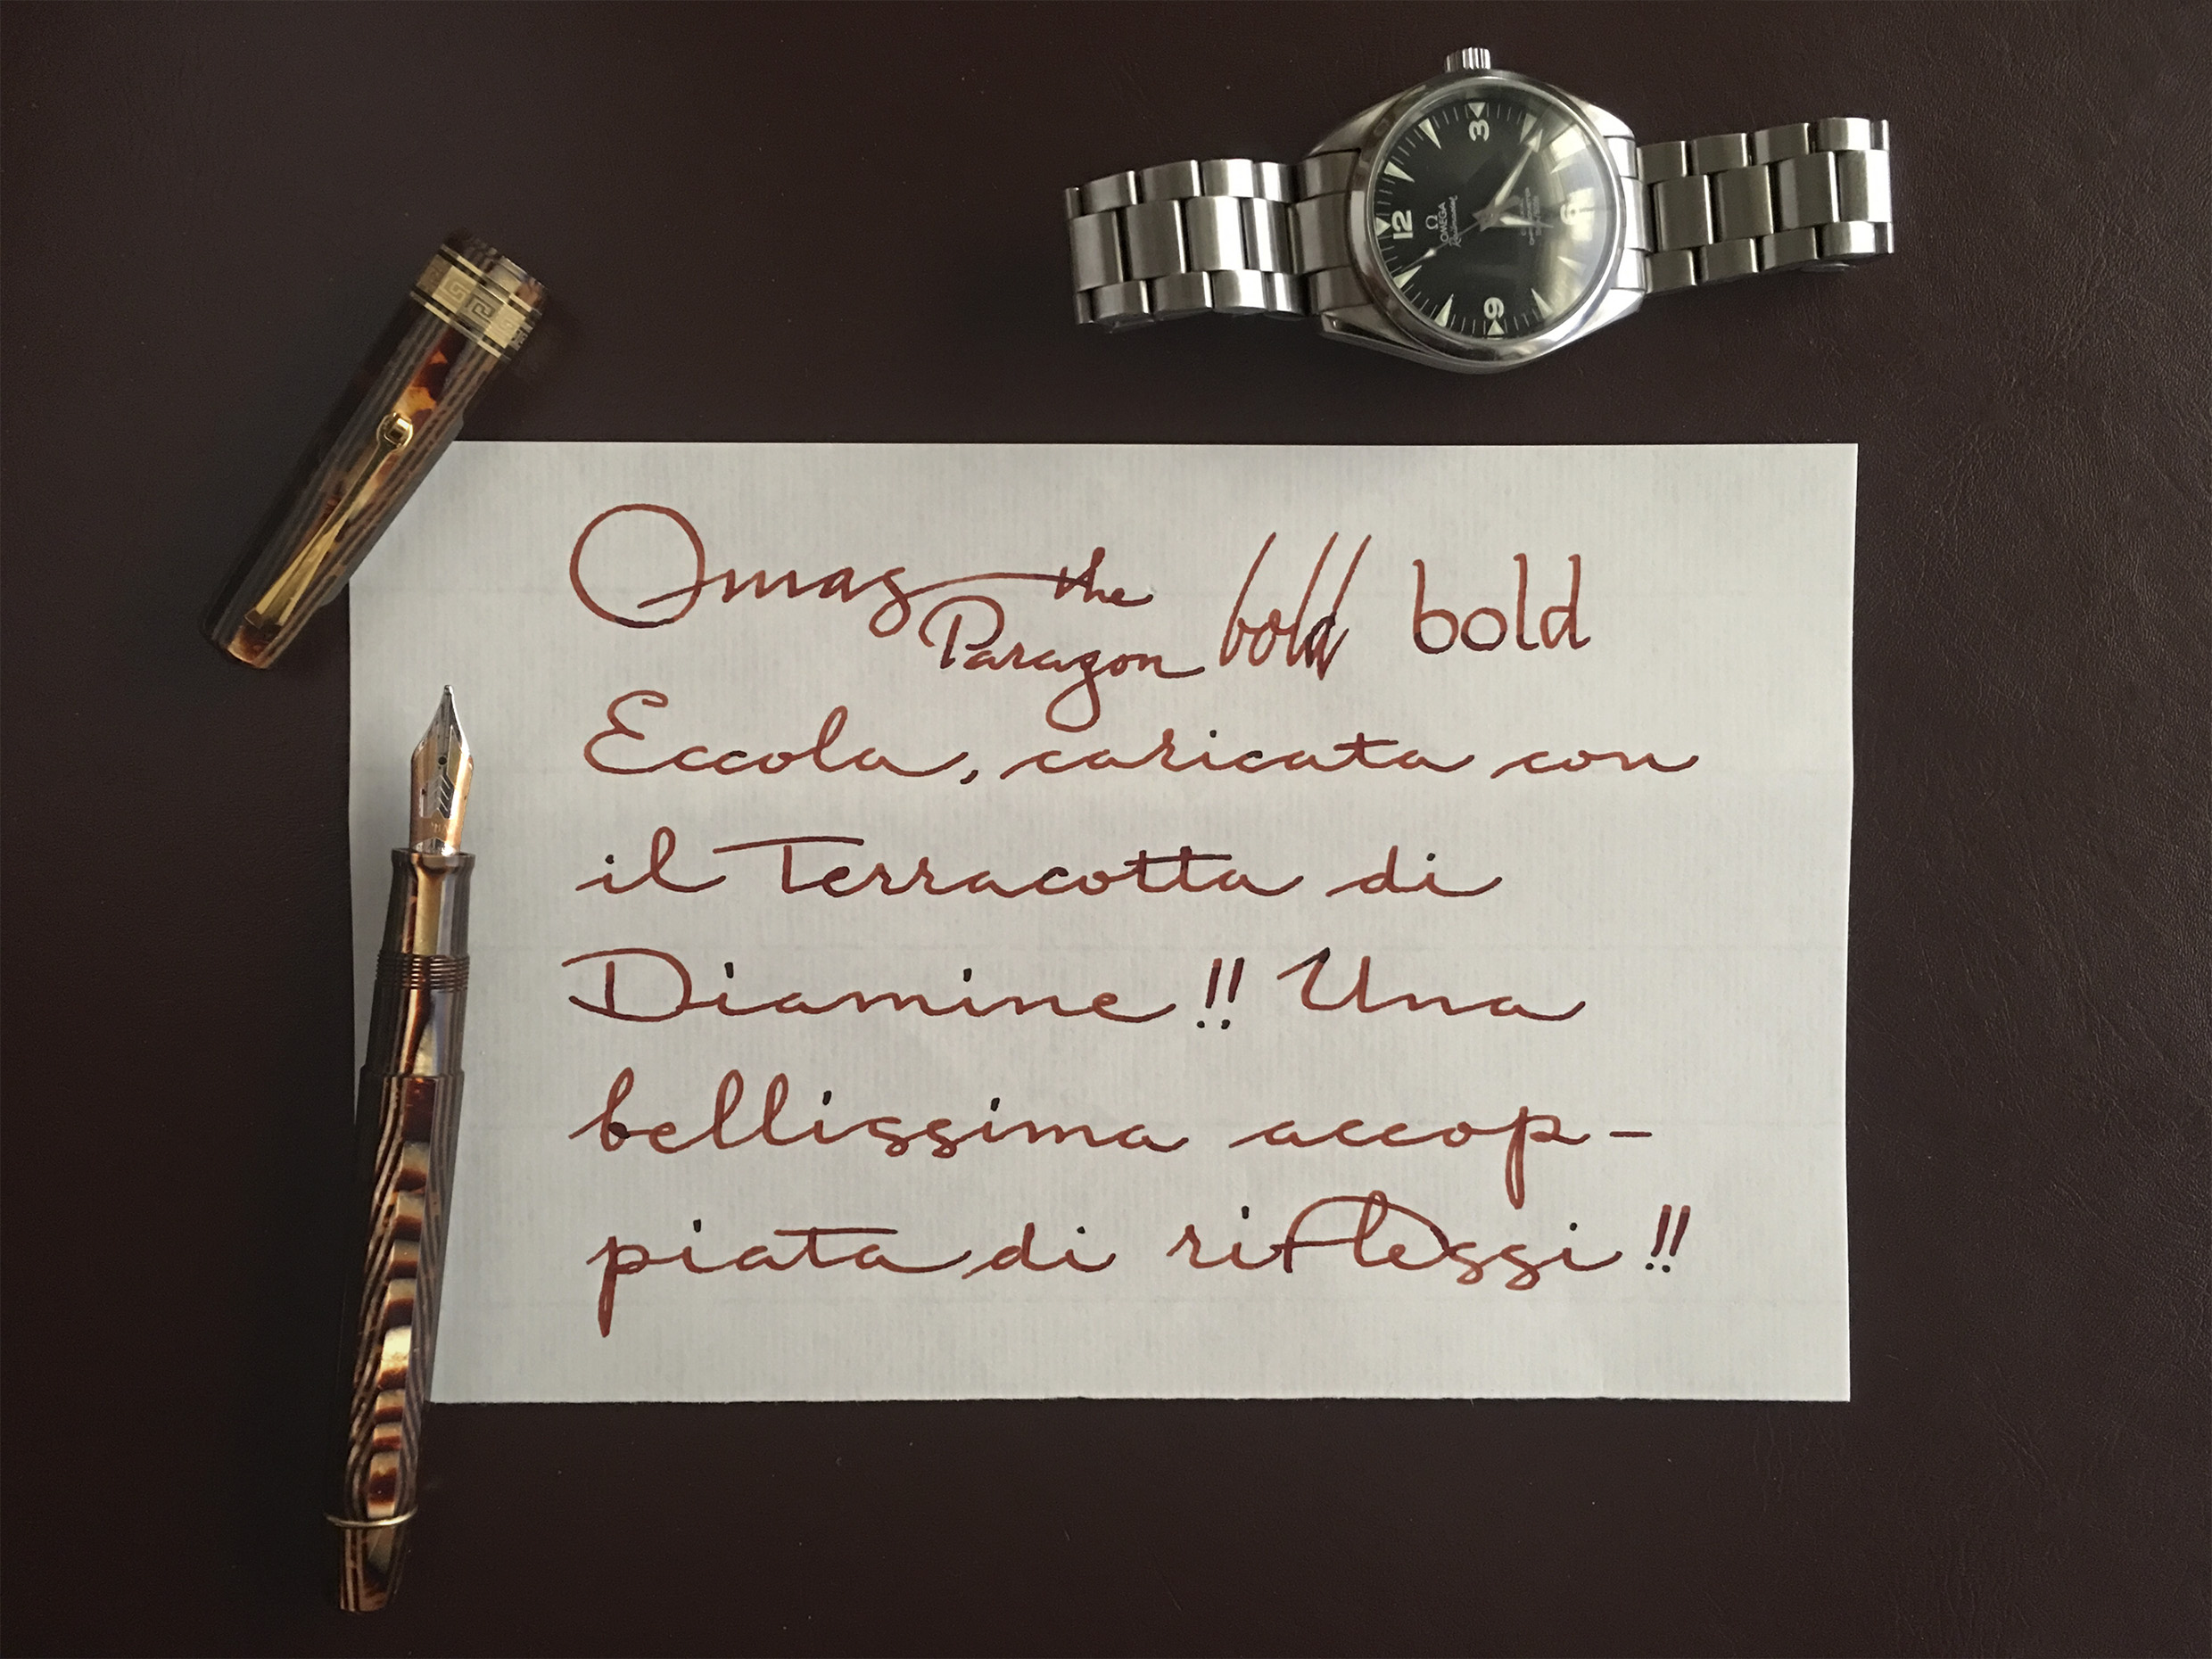 3
12
6
9
Ω
OMEGA
Railmaster
Omas the
Paragon bold bold
Eccola, caricata con
il Terracotta di
Diamine!! Una
bellissima accop-
piata di riflessi!!